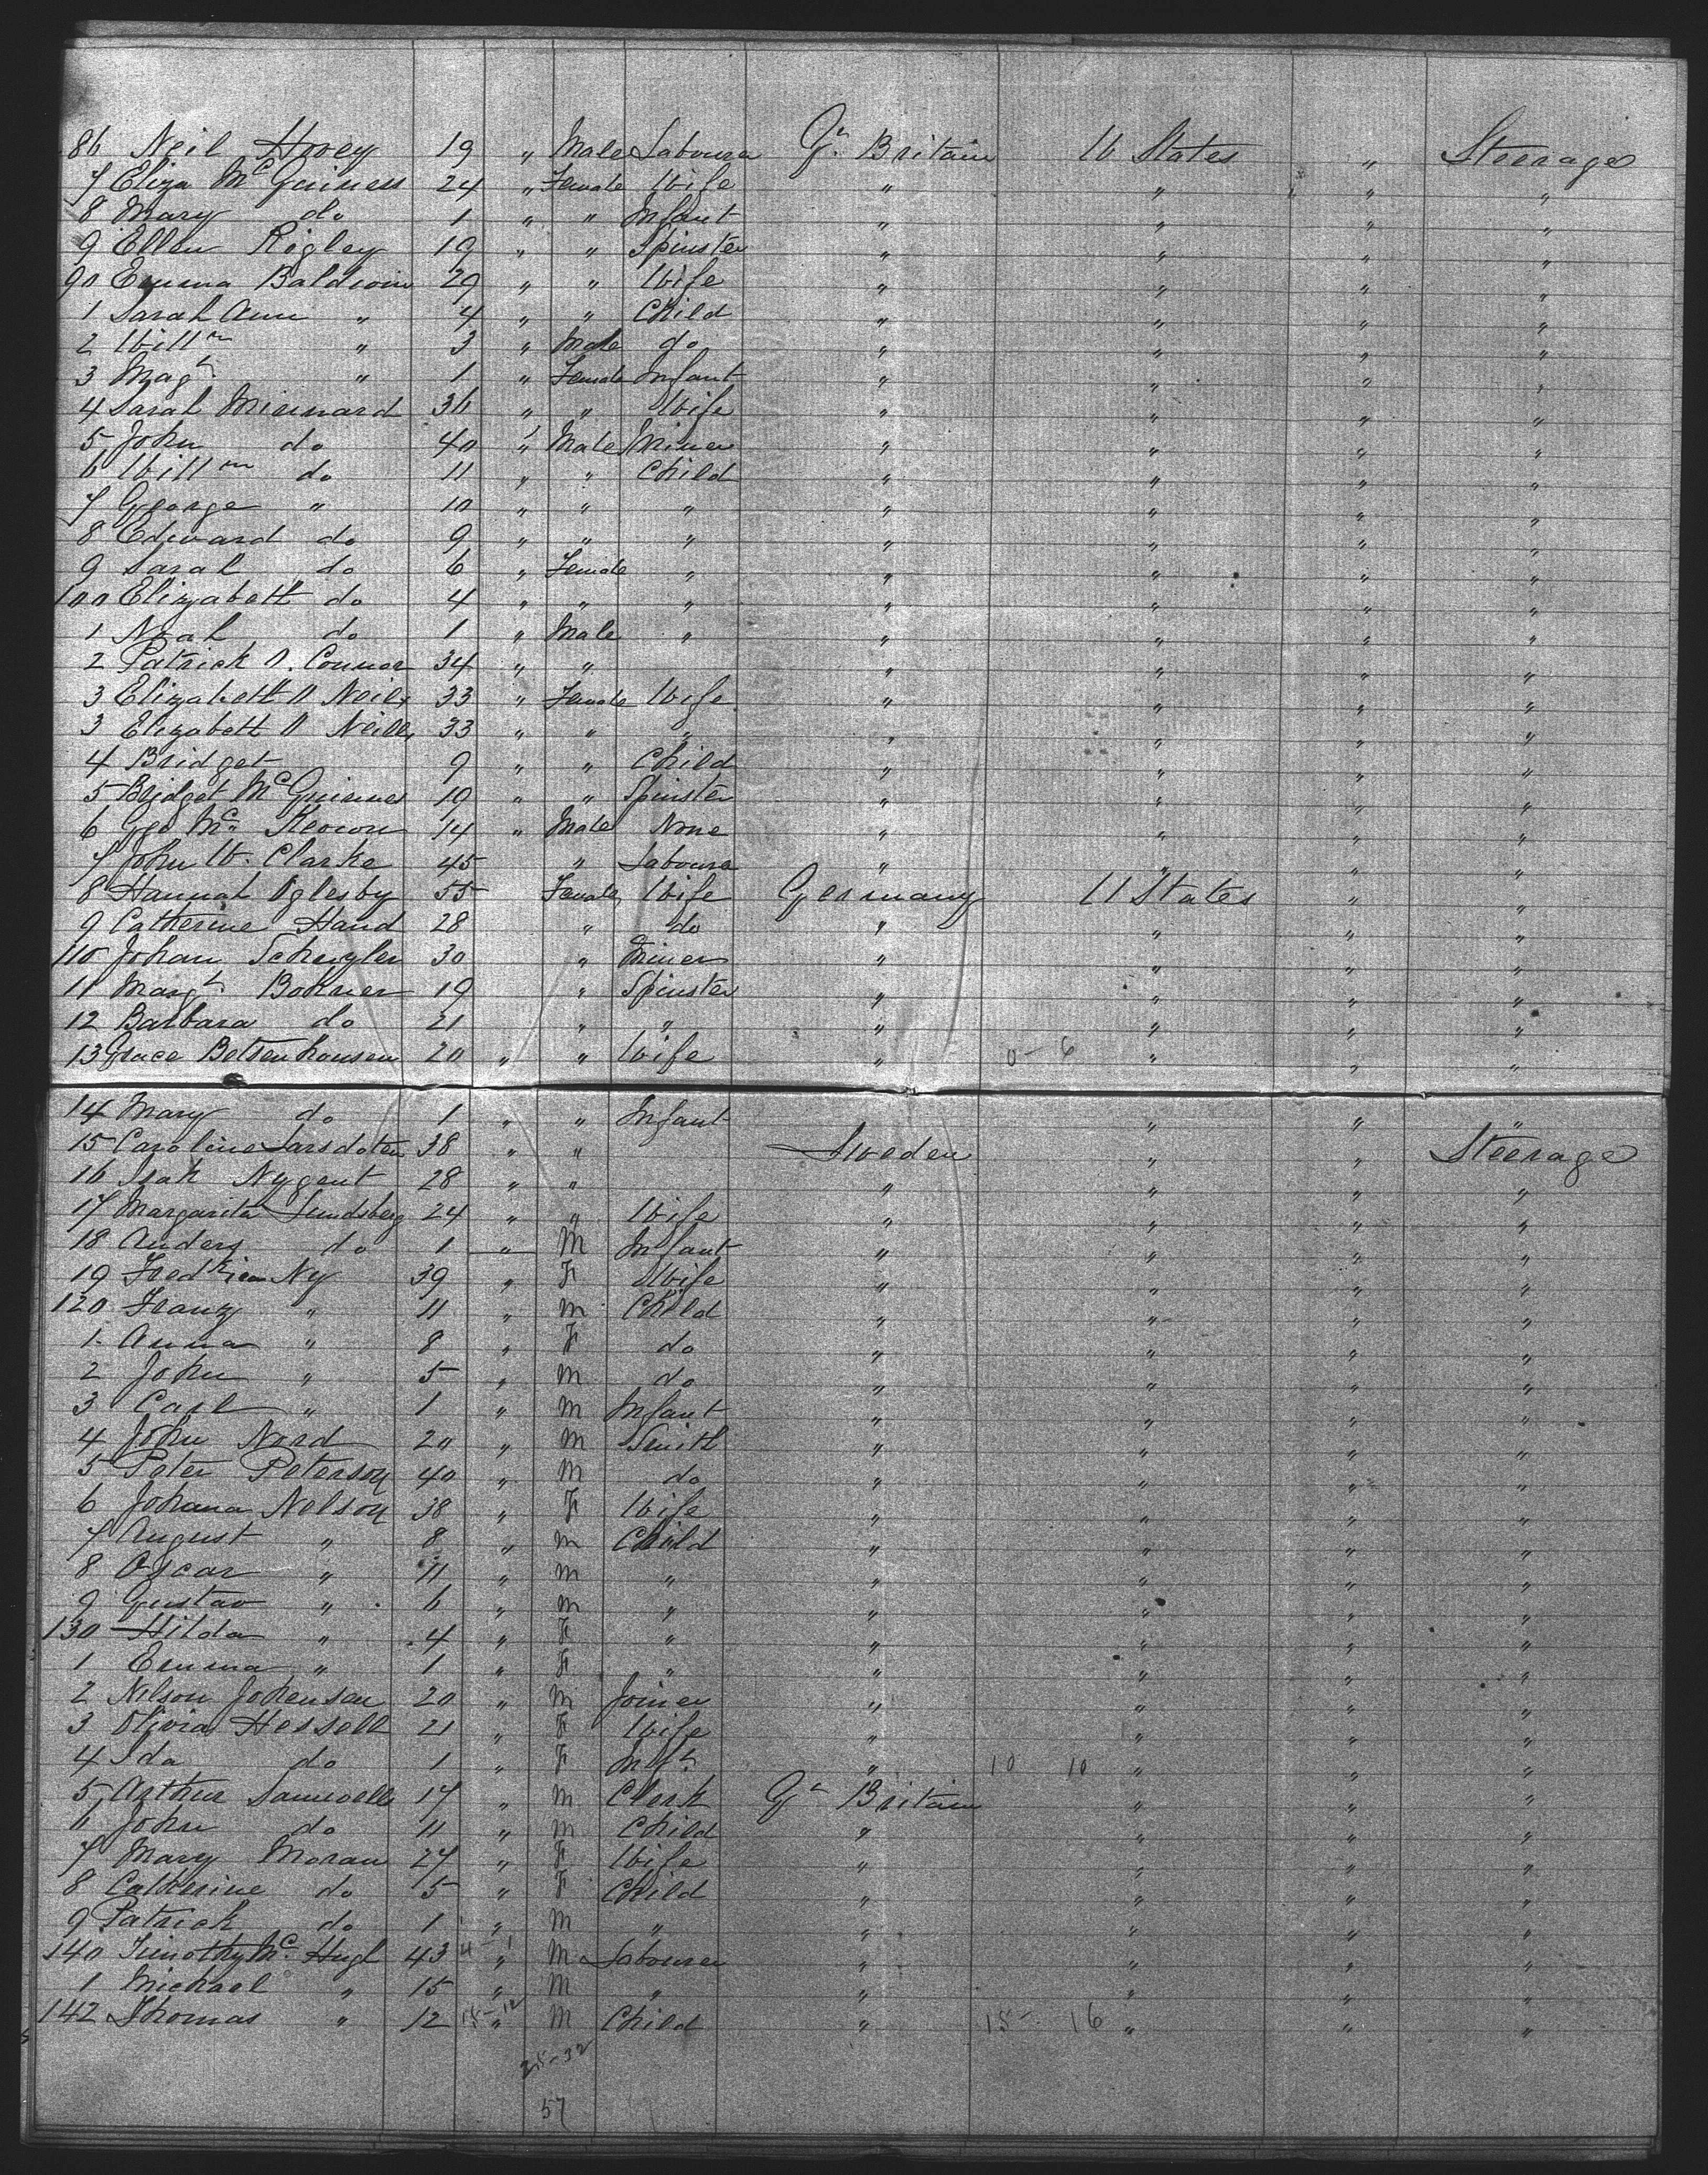 86 Neil Hovey 19 " Male Laboura Gt. Britain U States " Steerage
7 Eliza McGuiness 24 " Female Wife " " " "
8 Mary do 1 " " Infant " " " "
9 Ellen Rigley 19 " " Spinster " " " "
90 Emma Baldwin 29 " " Wife " " " "
1 Sarah Ann " 4 " " Child " " " "
2 Willm " 3 " Male do " " " "
3 Magt. " 1 " Female Infant " " " "
4 Sarah Minnard 36 " " Wife " " " "
5 John do 40 " Male Miner " " " "
6 Willm do 11 " " Child " " " "
7 George " 10 " " " " " " "
8 Edward do 9 " " " " " " "
9 Sarah do 6 " Female " " " " "
100 Elizabeth do 4 " " " " " " "
1 Noah do 1 " Male " " " " "
2 Patrick O. Connor 34 " " " " " "
3 Elizabeth O Neil 33 " Female Wife " " " "
3 Elizabeth O Neill 33 " " " " " " "
4 Bridget 9 " " Child " " " "
5 Bridget McGuiness 19 " " Spinster " " " "
6 Geo Mc Keown 14 " Male None " " " "
7 John W. Clarke 45 " Laboura " " " "
8 Hannah Oglesby 55 Female Wife Germany U States " "
9 Catherine Hand 28 " do " " " "
110 Johan Schuyler 30 " Miner " " " "
11 Margt. Bohner 19 " Spinster " " " "
12 Barbara do 21 " " " " " "
13 Grace Betsenhausen 20 " " Wife " 0 - 6 " " "
14 Mary do 1 " " Infant " " "
15 Caroline Larsdoten 38 " " Sweden " " Steerage
16 Isak Nygent 28 " " " " " "
17 Margarita Lundsberg 24 " " Wife " " " "
18 Anders do 1 " M Infant " " " "
19 Fredrica Ny 39 " F Wife " " " "
120 Franz " 11 " M Child " " " "
1 Anna " 8 " F do " " " "
2 John " 5 " M do " " " "
3 Carl " 1 " M Infant " " " "
4 John Nord 20 " M Smith " " " "
5 Peter Peterson 40 " M do " " " "
6 Johana Nelson 38 " F Wife " " " "
7 August " 8 " M Child " " " "
8 Oscar " 11 " M " " " " "
9 Gustav " 6 " M " " " " "
130 Hilda " 4 " F " " " " "
1 Emma " 1 " F " " " " "
2 Nilson Johensen 20 " M Joiner " " " "
3 Olivia Hessell 21 " F Wife " " " "
4 Ida do 1 " F Inft. " 10 10 " " "
5 Arthur Samwells 17 " M Clerk Gt Britain " " "
6 John do 11 " M Child " " " "
7 Mary Moran 27 " F Wife " " " "
8 Catherine do 5 " F Child " " " "
9 Patrick do 1 " M " " " " "
140 Timothy Mc Hugh 43 " M Labourer " " " "
1 Michael " 15 " M " " " " "
142 Thomas " 12 15-12 " M Child " 15- 16 " " "
25-32
57